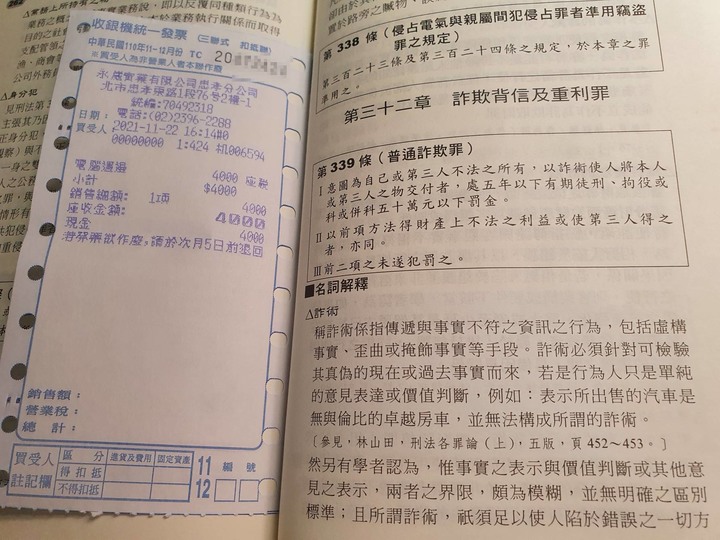 △實務上所謂業務，即以反覆同種類行為
收銀機統一發票（三聯式 扣抵聯）
中華民國110年11-12月份 TC
※買受人為非營業人者本聯作廢
永晟實業有限公司忠孝分公司
北市忠孝東路1段76号2樓-1
統編:70492318
電話:(02)2396-2288
日期:
買受人 2021-11-22 16:14#0
00000000 1:424 机006594
電腦週邊 4000 座税
小計 $4000
銷售總額: 1項 4000
應收金額: 4000
現金 4000
若棄藥欲作廢,請於次月5日前退回
銷售額：
營業稅：
總 計：
買受人註記欄
區 分 進貨及費用 固定資產
得扣抵
不得扣抵
11 12 編 號
置於路旁之贓物，
第 338 條（侵占電氣與親屬間犯侵占罪者準用竊盜
罪之規定）
第三百二十三條及第三百二十四條之規定，於本章之罪
準用之。
第三十二章 詐欺背信及重利罪
第 339 條（普通詐欺罪）
Ⅰ意圖為自己或第三人不法之所有，以詐術使人將本人
或第三人之物交付者，處五年以下有期徒刑、拘役或
科或併科五十萬元以下罰金。
Ⅱ以前項方法得財產上不法之利益或使第三人得之
者，亦同。
Ⅲ前二項之未遂犯罰之。
■名詞解釋
△詐術
稱詐術係指傳遞與事實不符之資訊之行為，包括虛構
事實、歪曲或掩飾事實等手段。詐術必須針對可檢驗
其真偽的現在或過去事實而來，若是行為人只是單純
的意見表達或價值判斷，例如：表示所出售的汽車是
無與倫比的卓越房車，並無法構成所謂的詐術。
〔參見，林山田，刑法各罪論（上），五版，頁 452～453。〕
然另有學者認為，惟事實之表示與價值判斷或其他意
見之表示，兩者之界限，頗為模糊，並無明確之區別
標準；且所謂詐術，祇須足以使人陷於錯誤之一切方